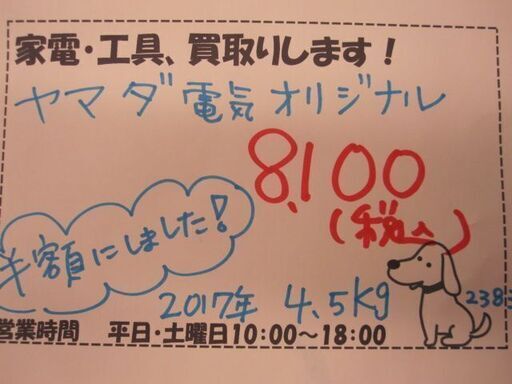 家電・工具、買取りします！
ヤマダ電気オリジナル
8,100
(税込)
半額にしました!
2017年 4.5Kg
238
営業時間 平日・土曜日10:00～18:00